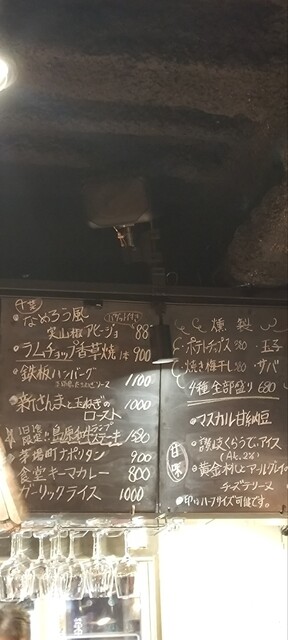 千葉
• なめろう風
バゲット付き
実山椒アヒージョ 88
• ラムチョップ香草焼 1本 900
• 鉄板ハンバーグ 1100
• 新さんまと玉ねぎの
ロースト 1000
1日
限定!! 島原和牛
ランプ
ステーキ 1580
• 茅場町ナポリタン 900
• 食堂キーマカレー 800
• ガーリックライス 1000
燻製
• ポテトチップス 380 • 玉子
• 焼き梅干し 280 • サバ
4種全部盛り 680
甘味
• マスカルポーネ甘納豆
• 讃岐くらうでぃアイス
(Alc.2%)
チーズテリーヌ
• 印はハーフサイズ可能です。